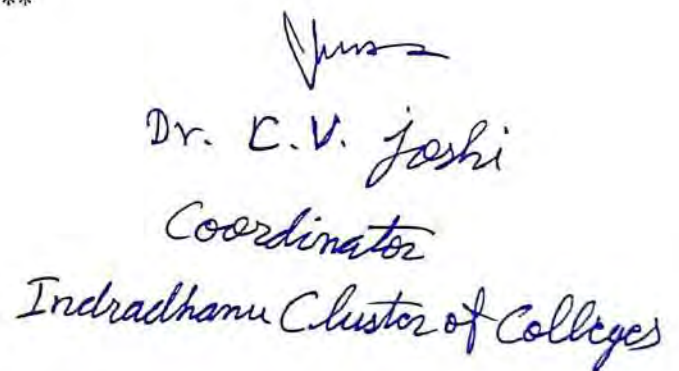 **
Dr. C.V. Joshi
Coordinator
Indradhanu Cluster of Colleges